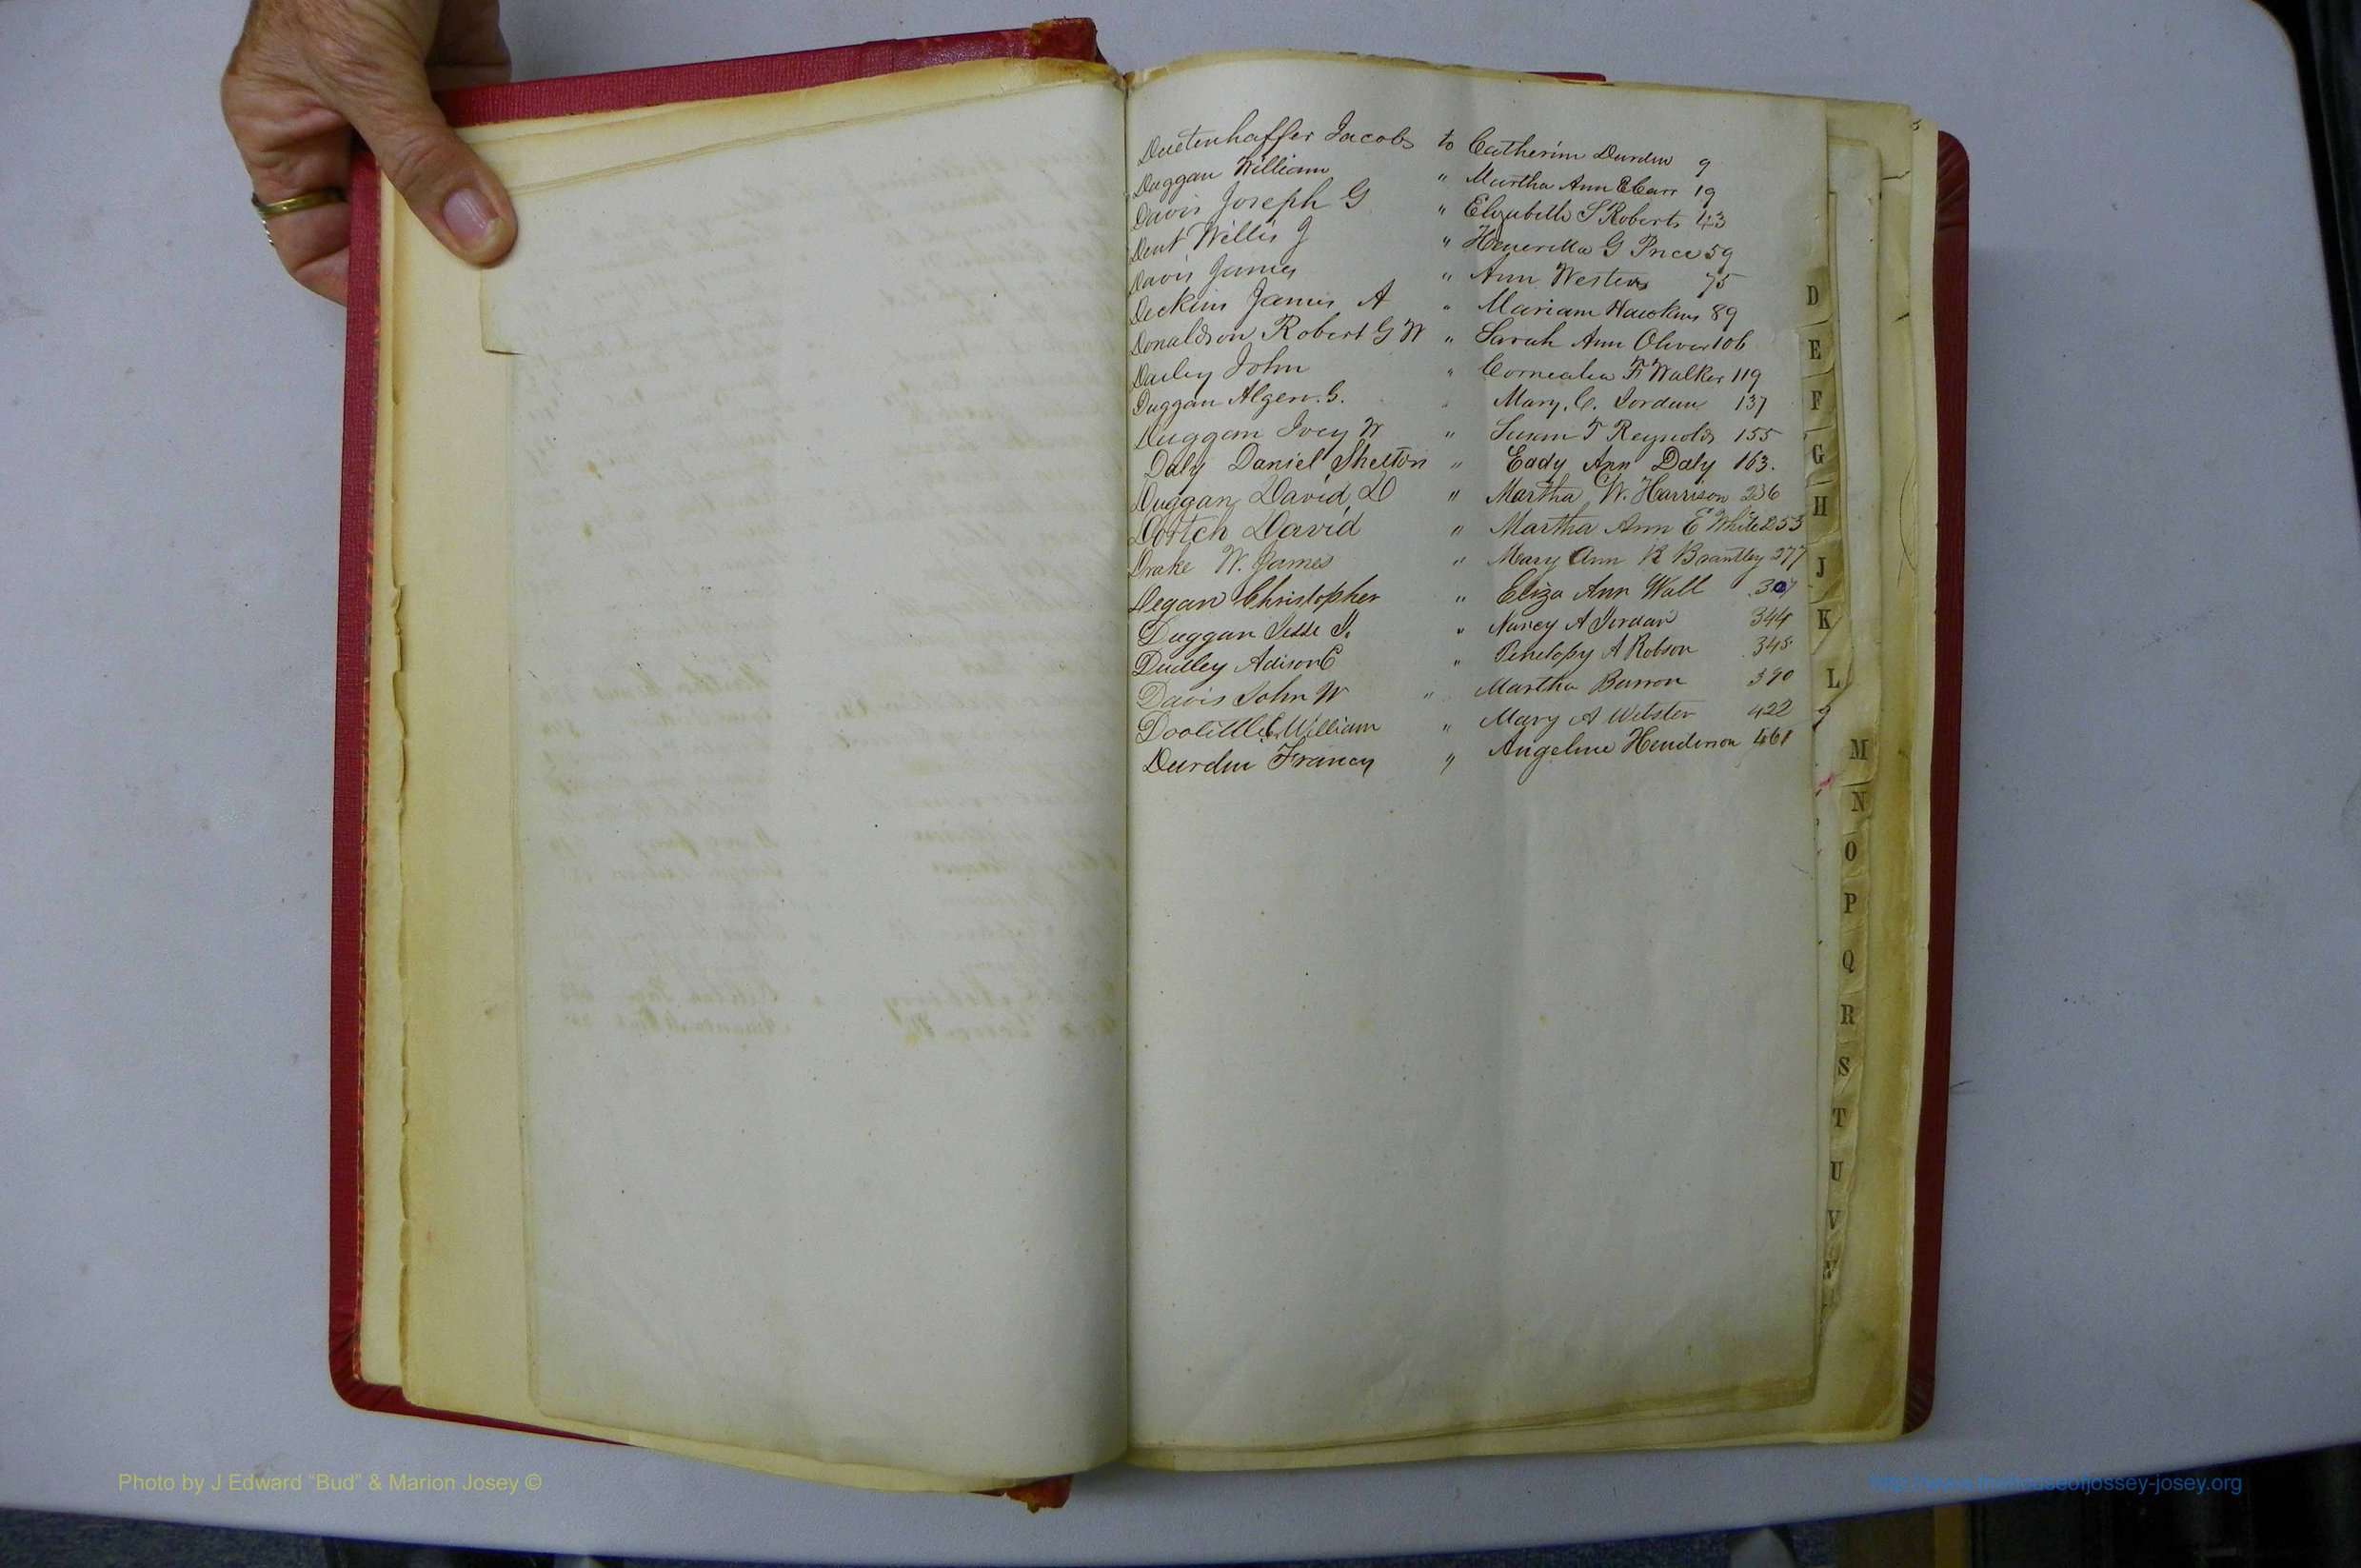 Duetenhaffer Jacob to Catherin Durden 9
Duggan William " Martha Ann E Carr 19
Davis Joseph G " Elizabeth S Roberts 43
Dent Willis J " Heneretta G Price 59
Davis James " Ann Western 75
Dickins James A " Mariam Hawkins 89
Donaldson Robert G W " Sarah Ann Oliver 106
Dailey John " Cornealia F Walker 119
Duggan Algen. S. " Mary. C. Jordan 137
Duggan Ivey W " Susan T Reynolds 155
Daly Daniel Shelton " Eady Ann Daly 163.
Duggan David D " Martha W. Harrison 236
Dortch David " Martha Ann E White 253
Drake W. James " Mary Ann R Brantley 277
Degan Christopher " Eliza Ann Wall 307
Duggan Jesse J. " Nancy A Jordan 344
Dudley Adison C " Penelopy A Robson 345
Davis John W " Martha Barron 390
Doolittle William " Mary A Webster 422
Durden Francis " Angeline Henderson 461
D
E
F
G
H
J
K
L
M
N
O
P
Q
R
S
T
U
V
W
Photo by J Edward “Bud” & Marion Josey ©
http://www.thehouseofjossey-josey.org